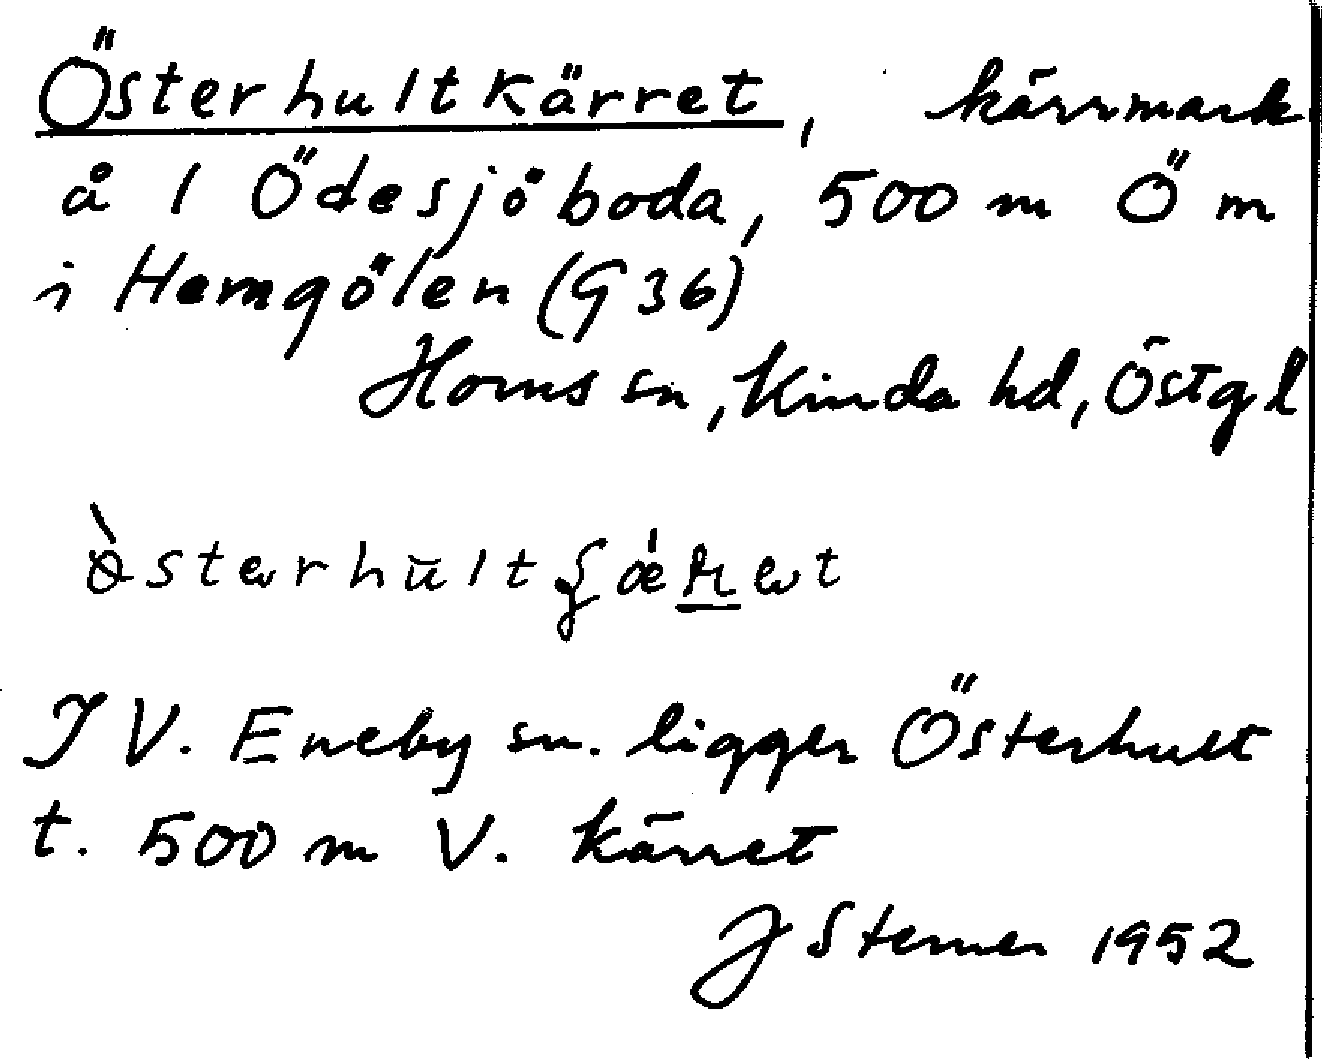 Österhultkärret, kärrmark
å 1 Ödesjöboda, 500 m Ö m
i Hemgölen (G 36)
Horns sn, Kinda hd, Östgl
I V. Eneby sn. ligger Österhult
t. 500 m V. kärret
J Sterner 1952